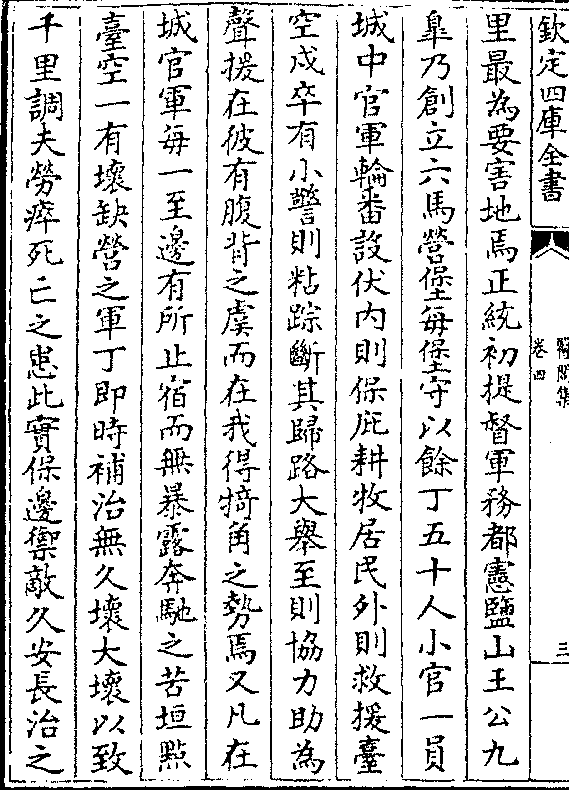 欽定四庫全書
醫閭集
卷四
三
里最為要害地焉正統初提督軍務都憲鹽山王公九
臯乃創立六馬營堡每堡守以餘丁五十人小官一員
城中官軍輪番設伏内則保庇耕牧居民外則救援臺
空戍卒有小警則粘踪斷其歸路大舉至則協力助為
聲援在彼有腹背之虞而在我得犄角之勢焉又凡在
城官軍每一至邊有所止宿而無暴露奔馳之苦垣㸃
臺空一有壞缺營之軍丁即時補治無久壞大壞以致
千里調夫勞瘁死亡之患此實保邊禦敵久安長治之